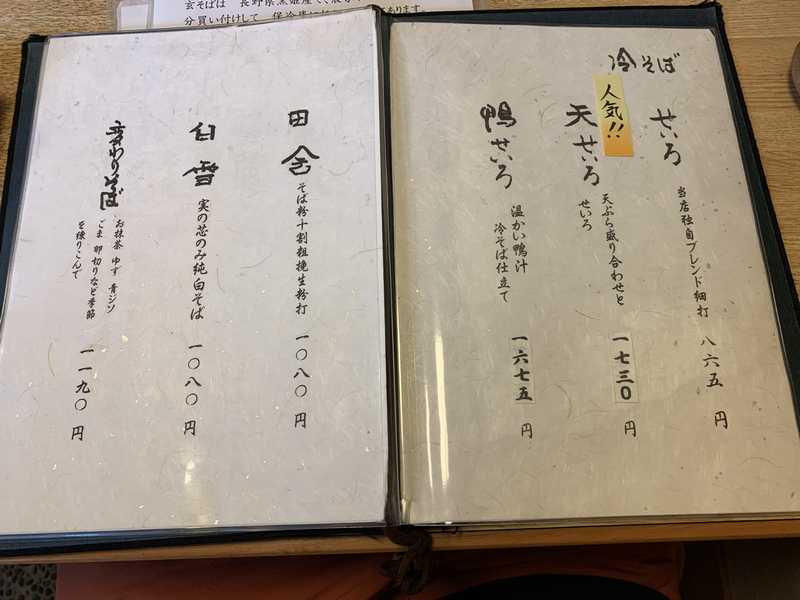 玄そばは 長野県黒姫産
分買い付けして 保冷庫に
あります。
冷そば
せいろ
当店独自ブレンド細打
八六五 円
人気!!
天せいろ
天ぷら盛り合わせと
せいろ
一七三〇 円
鴨せいろ
温かい鴨汁
冷そば仕立て
一六七五 円
田舎
そば粉十割粗挽生粉打
一〇八〇 円
白雪
実の芯のみ純白そば
一〇八〇 円
変わりそば
お抹茶 ゆず 青ジソ
ごま 卵切りなど季節
を練りこんで
一一九〇 円